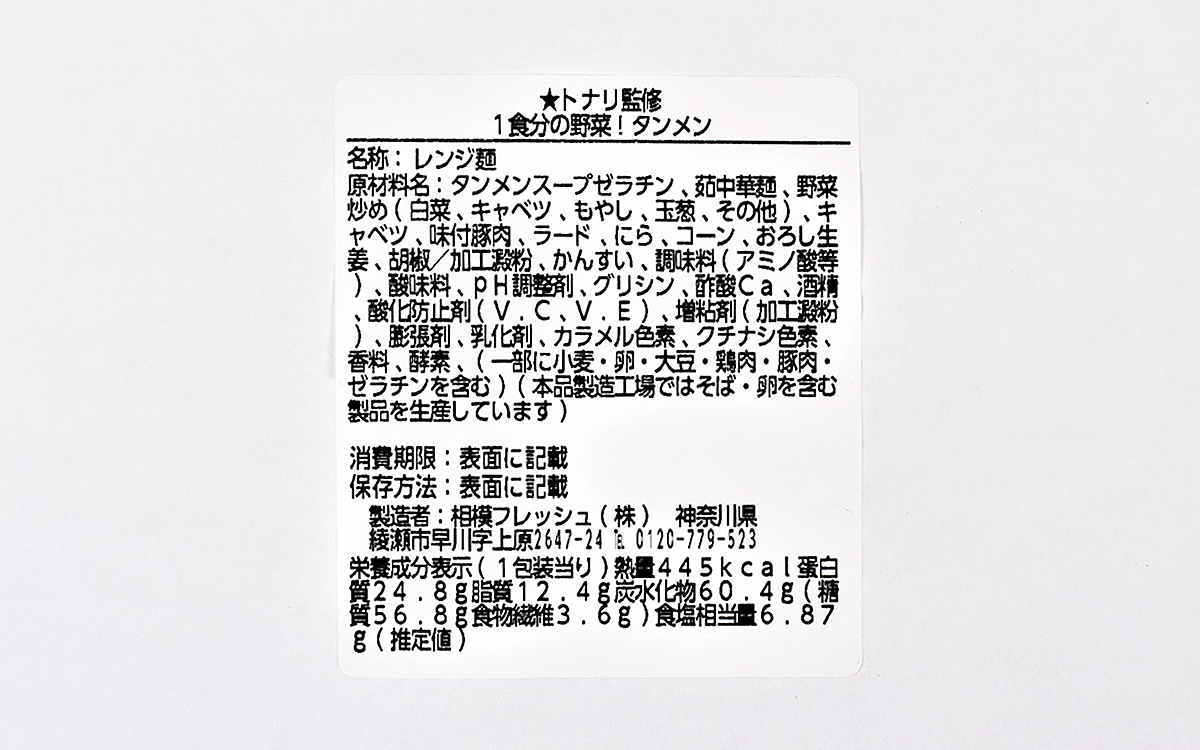 ★トナリ監修
1食分の野菜!タンメン
名称:レンジ麺
原材料名:タンメンスープゼラチン、茹中華麺、野菜
炒め(白菜、キャベツ、もやし、玉葱、その他)、キ
ャベツ、味付豚肉、ラード、にら、コーン、おろし生
姜、胡椒/加工澱粉、かんすい、調味料(アミノ酸等
)、酸味料、pH調整剤、グリシン、酢酸Ca、酒精
、酸化防止剤(V.C、V.E)、増粘剤(加工澱粉
)、膨張剤、乳化剤、カラメル色素、クチナシ色素、
香料、酵素、(一部に小麦・卵・大豆・鶏肉・豚肉・
ゼラチンを含む)(本品製造工場ではそば・卵を含む
製品を生産しています)
消費期限:表面に記載
保存方法:表面に記載
製造者:相模フレッシュ(株) 神奈川県
綾瀬市早川字上原2647-24 ℡ 0120-779-523
栄養成分表示(1包装当り)熱量445kcal蛋白
質24.8g脂質12.4g炭水化物60.4g(糖
質56.8g食物繊維3.6g)食塩相当量6.87
g(推定値)